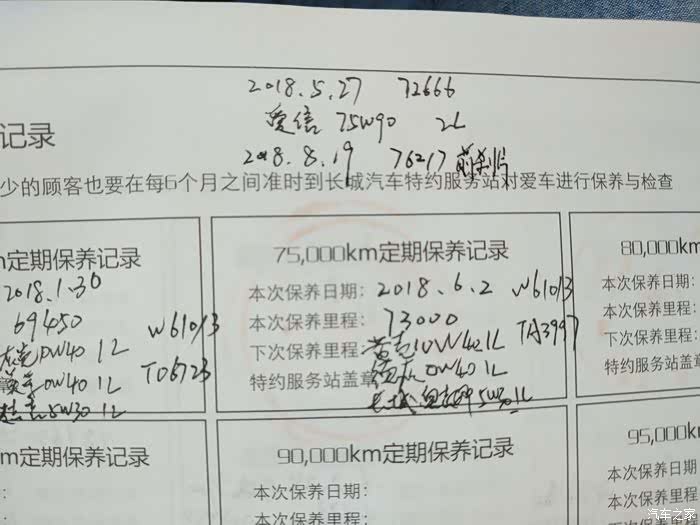 2018.5.27 72666
爱信 75W90 2L
2018.8.19 76217 前刹片
记录
少的顾客也要在每6个月之间准时到长城汽车特约服务站对爱车进行保养与检查
m定期保养记录
2018.1.30
69450 W610/3
0W40 1L
0W40 1L TO6723
5W30 1L
75,000km定期保养记录
本次保养日期: 2018.6.2 W610/3
本次保养里程: 73000
下次保养里程: 10W40 1L TA3997
特约服务站盖章 0W40 1L
长城 5W30 1L
80,000km
本次保养日期
本次保养里程
下次保养里程
特约服务站盖
m定期保养记录
90,000km定期保养记录
本次保养日期:
本次保养里程:
95,000
本次保养日期
本次保养里
汽车之家